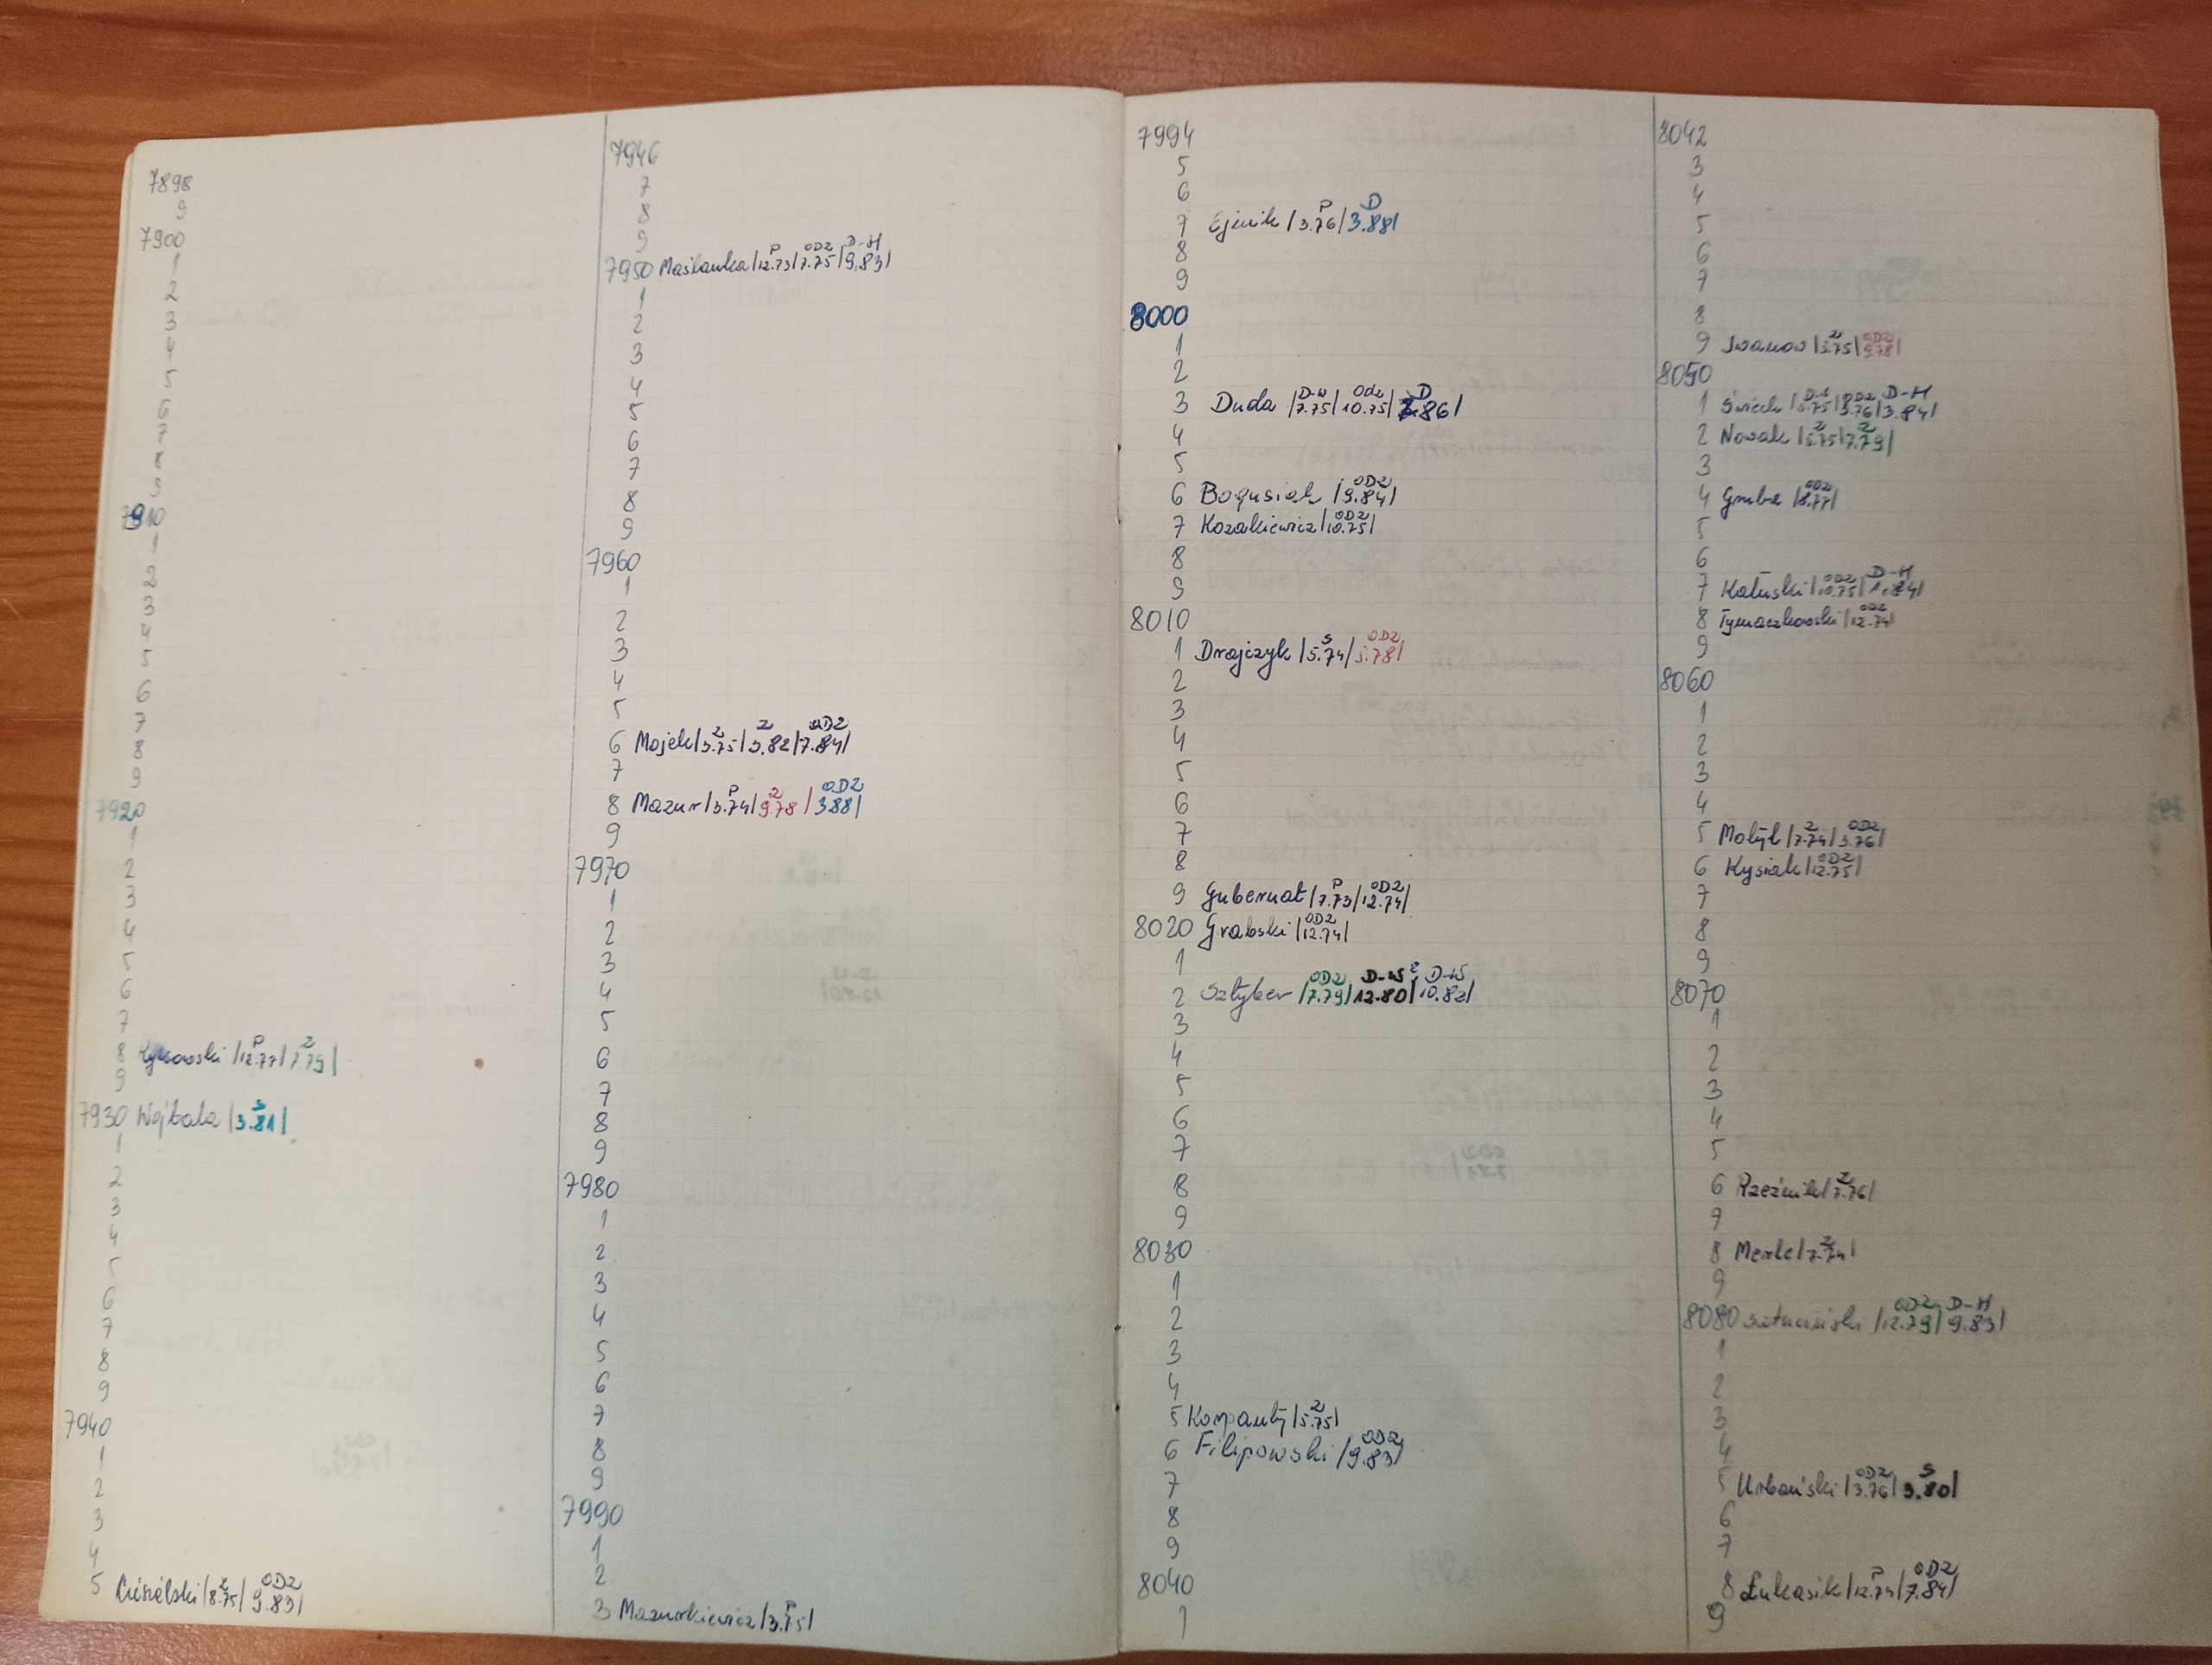 7898
9
7900
1
2
3
4
5
6
7
8
9
7910
1
2
3
4
5
6
7
8
9
7920
1
2
3
4
5
6
7
8 P 2
|12.77|7.79|
9
7930 Wojtala |3.81| S
1
2
3
4
5
6
7
8
9
7940
1
2
3
4
5 Ciesielski |8.75| 9.83| 2 OD2
7946
7
8
9
7950 Maślanka |12.73|7.75|9.83| P OD2 D-H
1
2
3
4
5
6
7
8
9
7960
1
2
3
4
5
6 Mojek |3.75|3.82|7.84| 2 2 OD2
7
8 Mazur |3.74|9.78|3.88| P 2 OD2
9
7970
1
2
3
4
5
6
7
8
9
7980
1
2
3
4
5
6
7
8
9
7990
1
2
3 Mazurkiewicz |3.75| P
7994
5
6
7 Ejnik |3.76|3.88| P D
8
9
8000
1
2
3 Duda |7.75|10.75| 86| D-W OD2 D
4
5
6 Bogusiak |9.84| OD2
7 Kozakiewicz |10.75| OD2
8
9
8010
1 Drajczyk |5.74|5.78| S OD2
2
3
4
5
6
7
8
9 Gubernat |7.73|12.74| P OD2
8020 Grabski |12.74| OD2
1
2 Sztyber |7.79|12.80|10.82| OD2 D-W D-W
3
4
5
6
7
8
9
8030
1
2
3
4
5 Kompanty |5.75| 2
6 Filipowski |9.83| OD2
7
8
9
8040
1
8042
3
4
5
6
7
8
9 Iwanow |5.75|9.78| 2 OD2
8050
1 3.76|3.84| OD2 D-H
2 Nowak |5.75|7.79| 2 2
3
4 Gruba |8.77| OD2
5
6
7 Kałuski |10.75|1.84| OD2 D-H
8 Tymaczkowski |12.74| OD2
9
8060
1
2
3
4
5 Motyl |7.74|3.76| 2 OD2
6 Kysiak |12.75| OD2
7
8
9
8070
1
2
3
4
5
6 Rzeźnik |7.76| 2
7
8 Merle |7.74| 2
9
8080 |12.79|9.83| OD2 D-H
1
2
3
4
5 Urbański |3.76|3.80| OD2 S
6
7
8 Łukasik |12.74|7.84| P OD2
9